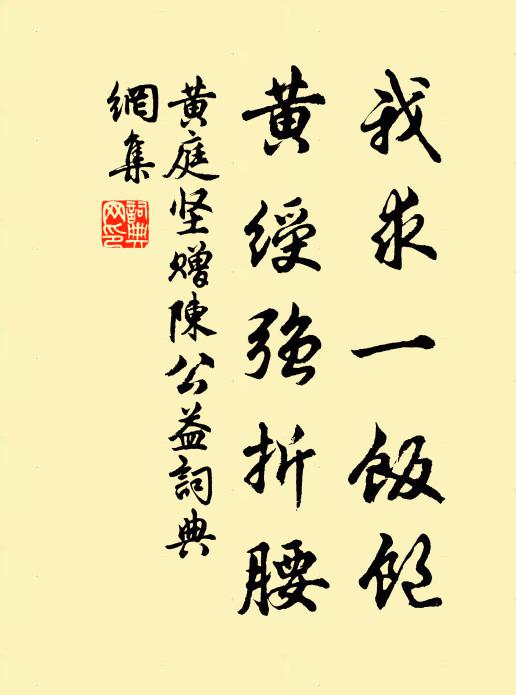 我求一飯飽
黃綬強折腰
黃庭坚贈陳公益詞典
網集
詞典
网印